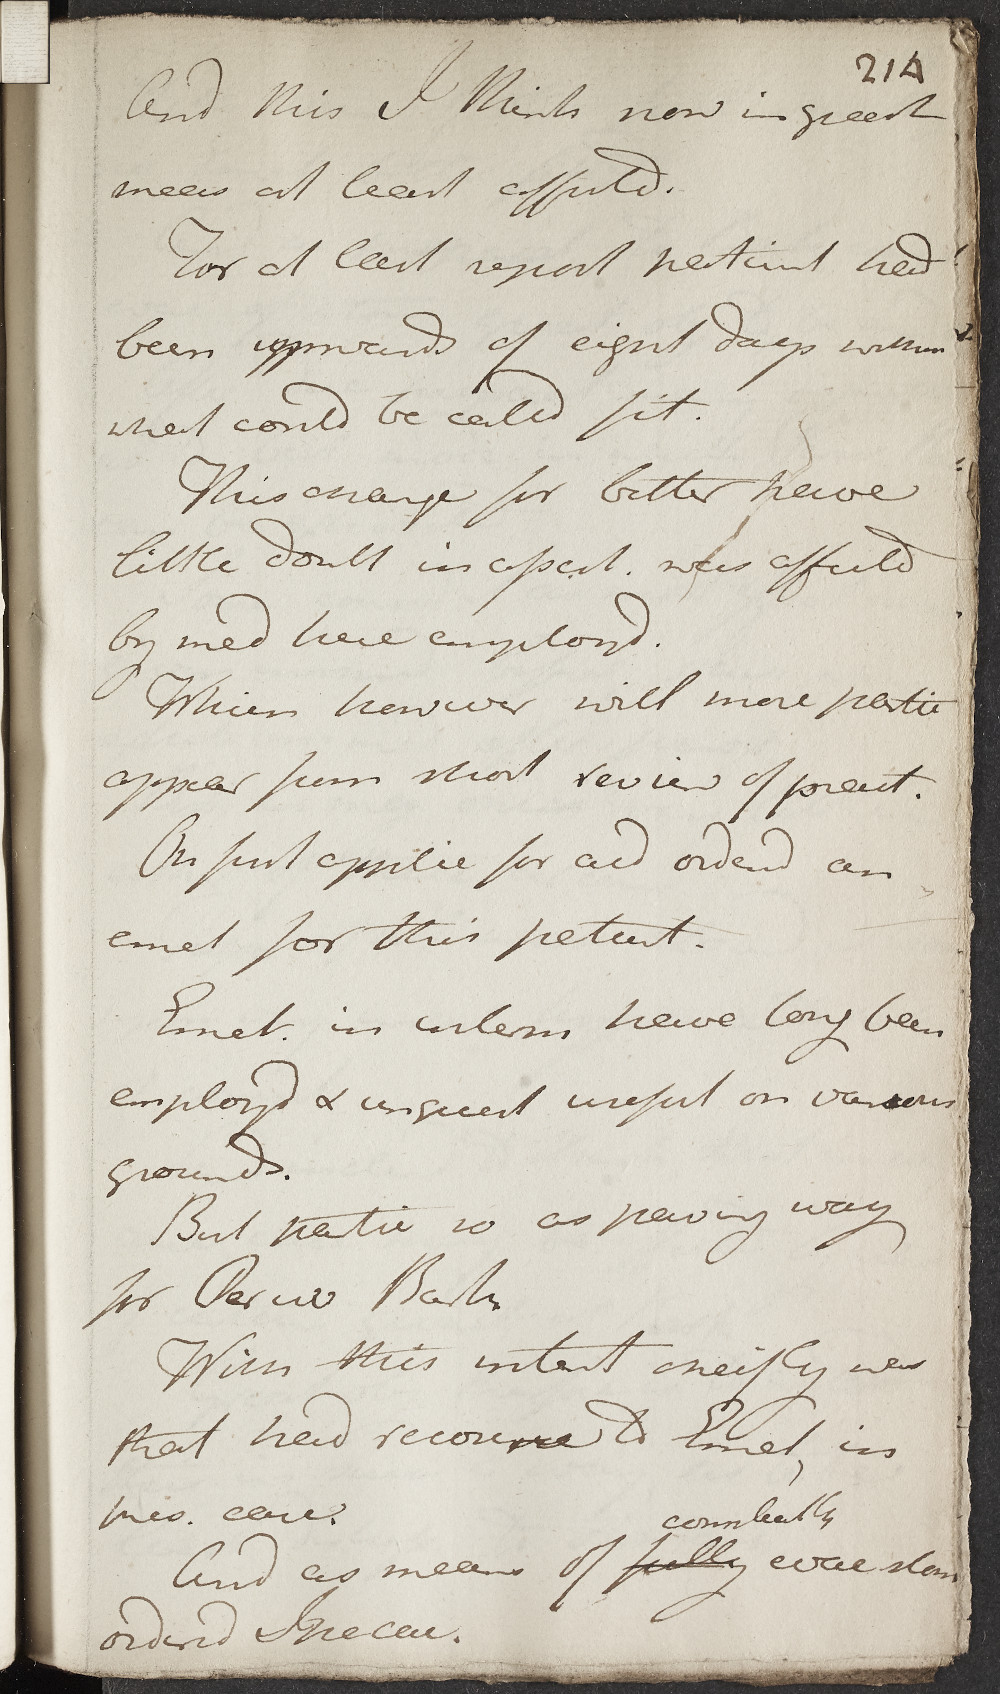 214
And this I think now in great
meas at least affectd.
For at last report patient had
been upwards of eight days without
what could be called fit.
This change for better have
little doubt in a part. was affectd
by med here employd.
Which however will more partic
appear from short review of pract.
On first applic for aid orderd an
emet for this patient.
Emet. in interm have long been
employd & in great useful on various
grounds.
But partic so as paving way
for Peruv Bark
With this intent cheifly was
that had recourse to Emet, in
pres. case.
completely
And as means of fully evac stom
orderd Ipecac.